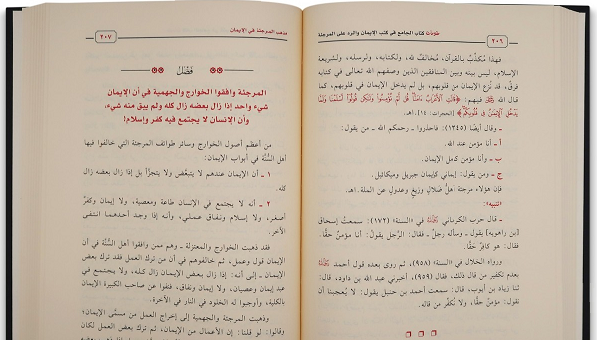 ٢٠٦ طليات كتاب الجامع في كتب الإيمان والرد على المرجئة
فهذا مكذِّبٌ بالقرآن، مخالفٌ لله، ولكتابه، ولرسله، ولشريعة
الإسلام، ليس بينه وبين المنافقين الذين وصفهم الله تعالى في كتابه
فرق، قد نزع الإيمان من قلوبهم، بل لم يدخل الإيمان في قلوبهم، كما
قال الله فيهم: ﴿قَالَتِ الْأَعْرَابُ ءَامَنَّا قُل لَّمْ تُؤْمِنُوا وَلَٰكِن قُولُوا أَسْلَمْنَا وَلَمَّا
يَدْخُلِ الْإِيمَٰنُ فِي قُلُوبِكُمْ﴾ [الحجرات: ١٤]. اهـ.
ـ وقال أيضًا (١٢٤٥): فاحذروا ـ رحمكم الله ـ من يقول:
أ ـ أنا مؤمن عند الله.
ب ـ وأنا مؤمن كامل الإيمان.
ج ـ ومن يقول: إيماني كإيمان جبريل وميكائيل.
فإن هؤلاء مرجئة أهلُ ضَلالٍ وزيغٍ وعدولٍ عن الملة. اهـ.
تنبيه:
ـ قال حرب الكرماني في «السنة» (١٧٢): سمعتُ إسحاق
[بن راهويه] يقول ـ وسأله رجلٌ ـ فقال: الرَّجل يقول: أنا مؤمن حقًّا.
فقال: هو كافرٌ حقًّا.
ورواه الخلال في «السنة» (٩٥٨)، ثم روى بعده قول أحمد
بعدم تكفير من قال ذلك، فقال (٩٥٩): أخبرني عبد الله بن داود، قال:
ثنا زياد بن أيوب، قال: سمعت أحمد بن حنبل يقول: لا يُعجبنا أن
نقول: مؤمنٌ حقًّا، ولا نُكفِّر من قاله.
مذهب المرجئة في الإيمان ٢٠٧
فَصْلٌ
المرجئة وافقوا الخوارج والجهمية في أن الإيمان
شيء واحد إذا زال بعضه زال كله ولم يبق منه شيء،
وأن الإنسان لا يجتمع فيه كفر وإسلام!
من أعظم أصول الخوارج وسائر طوائف المرجئة التي خالفوا فيها
أهل السُّنَّة في أبواب الإيمان:
١ ـ أن الإيمان عندهم لا يتبعَّض ولا يتجزَّأ بل إذا زال بعضه زال
كله.
٢ ـ أنه لا يجتمع في الإنسان طاعة ومعصية، ولا إيمان وكفرٌ
أصغر، ولا إسلام ونفاق عملي، وأنه إذا وجد أحدهما انتفى
الآخر.
فقد ذهبت الخوارج والمعتزلة ـ وهم ممن وافقوا أهل السُّنَّة في أن
الإيمان قول وعمل، ثم خالفوهم في أن من ترك العمل فقد ترك بعض
الإيمان ـ إلى أنه: إذا زال بعض الإيمان زال كله، ولا يجتمع في
عبد إيمان وعصيان، ولا إيمان ونفاق، فنفوا عن صاحب الكبيرة الإيمان
بالكلية، وأوجبوا له الخلود في النار في الآخرة.
وذهبت المرجئة والجهمية إلى إخراج العمل من مسمَّى الإيمان؛
وقالوا: لو قلنا: إن الأعمال من الإيمان، ثم ترك بعض العمل لكان